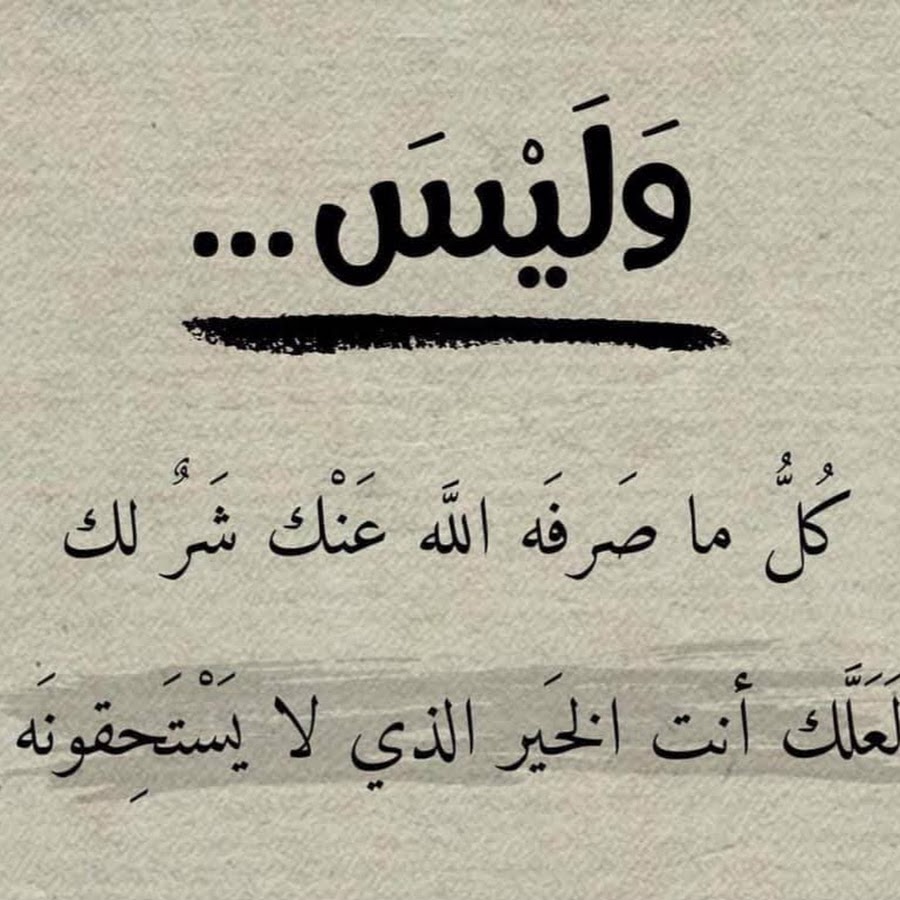 وَلَيْسَ...
كُلُّ ما صَرفَه اللَّه عَنْك شَرٌ لك
لَعَلَّك أنت الخَير الذي لا يَسْتَحِقونَه